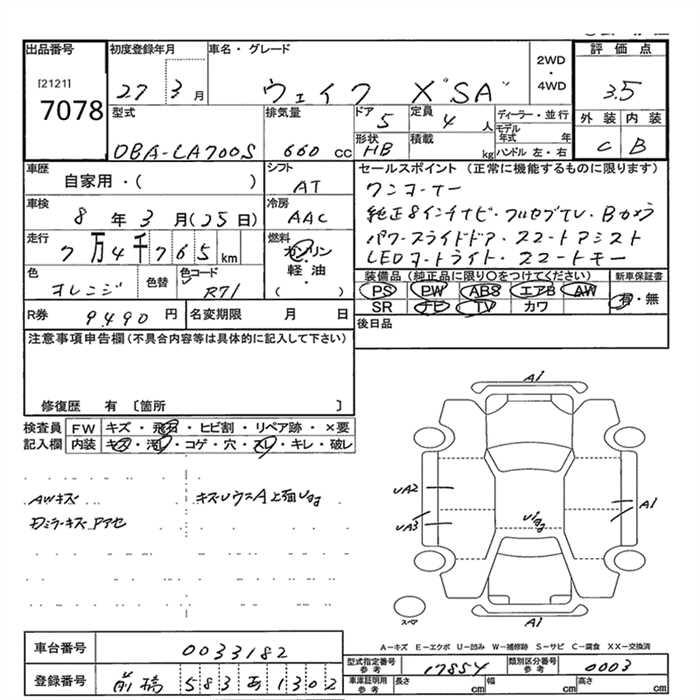 出品番号
[2121]
7078
初度登録年月
27 3月
車名・グレード
ウェイク X"SA"
2WD
・
4WD
評価点
3.5
型式
DBA-LA700S
排気量
660 cc
ドア 5
定員 4 人
ディーラー・並行
モデル年式 年
形状 HB
積載 kg
ハンドル 左・右
外装 内装
C B
車歴
自家用・( )
シフト
AT
セールスポイント (正常に機能するものに限ります)
ワンオーナー
純正8インチナビ・フルセグTV・Bカメラ
パワースライドドア・スマートアシスト
LEDオートライト・スマートキー
車検
8年3月(25日)
冷房
AAC
走行
7万4千765km
燃料
ガソリン
・
軽油
・
( )
色
オレンジ
色替
色コード
R71
装備品 (純正品に限り○をつけてください)
PS PW ABS エアB AW
SR ナビ TV カワ
新車保証書
有・無
R券 9490円
名変期限 月 日
後日品
注意事項申告欄 (不具合内容等は具体的に記入して下さい)
修復歴 有 [箇所 ]
検査員 FW キズ・飛石・ヒビ割・リペア跡・×要
記入欄 内装 キズ・汚れ・コゲ・穴・スレ・キレ・破レ
AWキズ
キズ
A1
UA2
UA3
A1
A1
スペア
A-キズ E-エクボ U-凹み W-補修跡 S-サビ C-腐食 XX-交換済
車台番号 0033182
登録番号 前橋 583 あ 1302
型式指定番号 参考 17854
類別区分番号 参考 0003
車庫証明用 参考 長さ cm 幅 cm 高さ cm